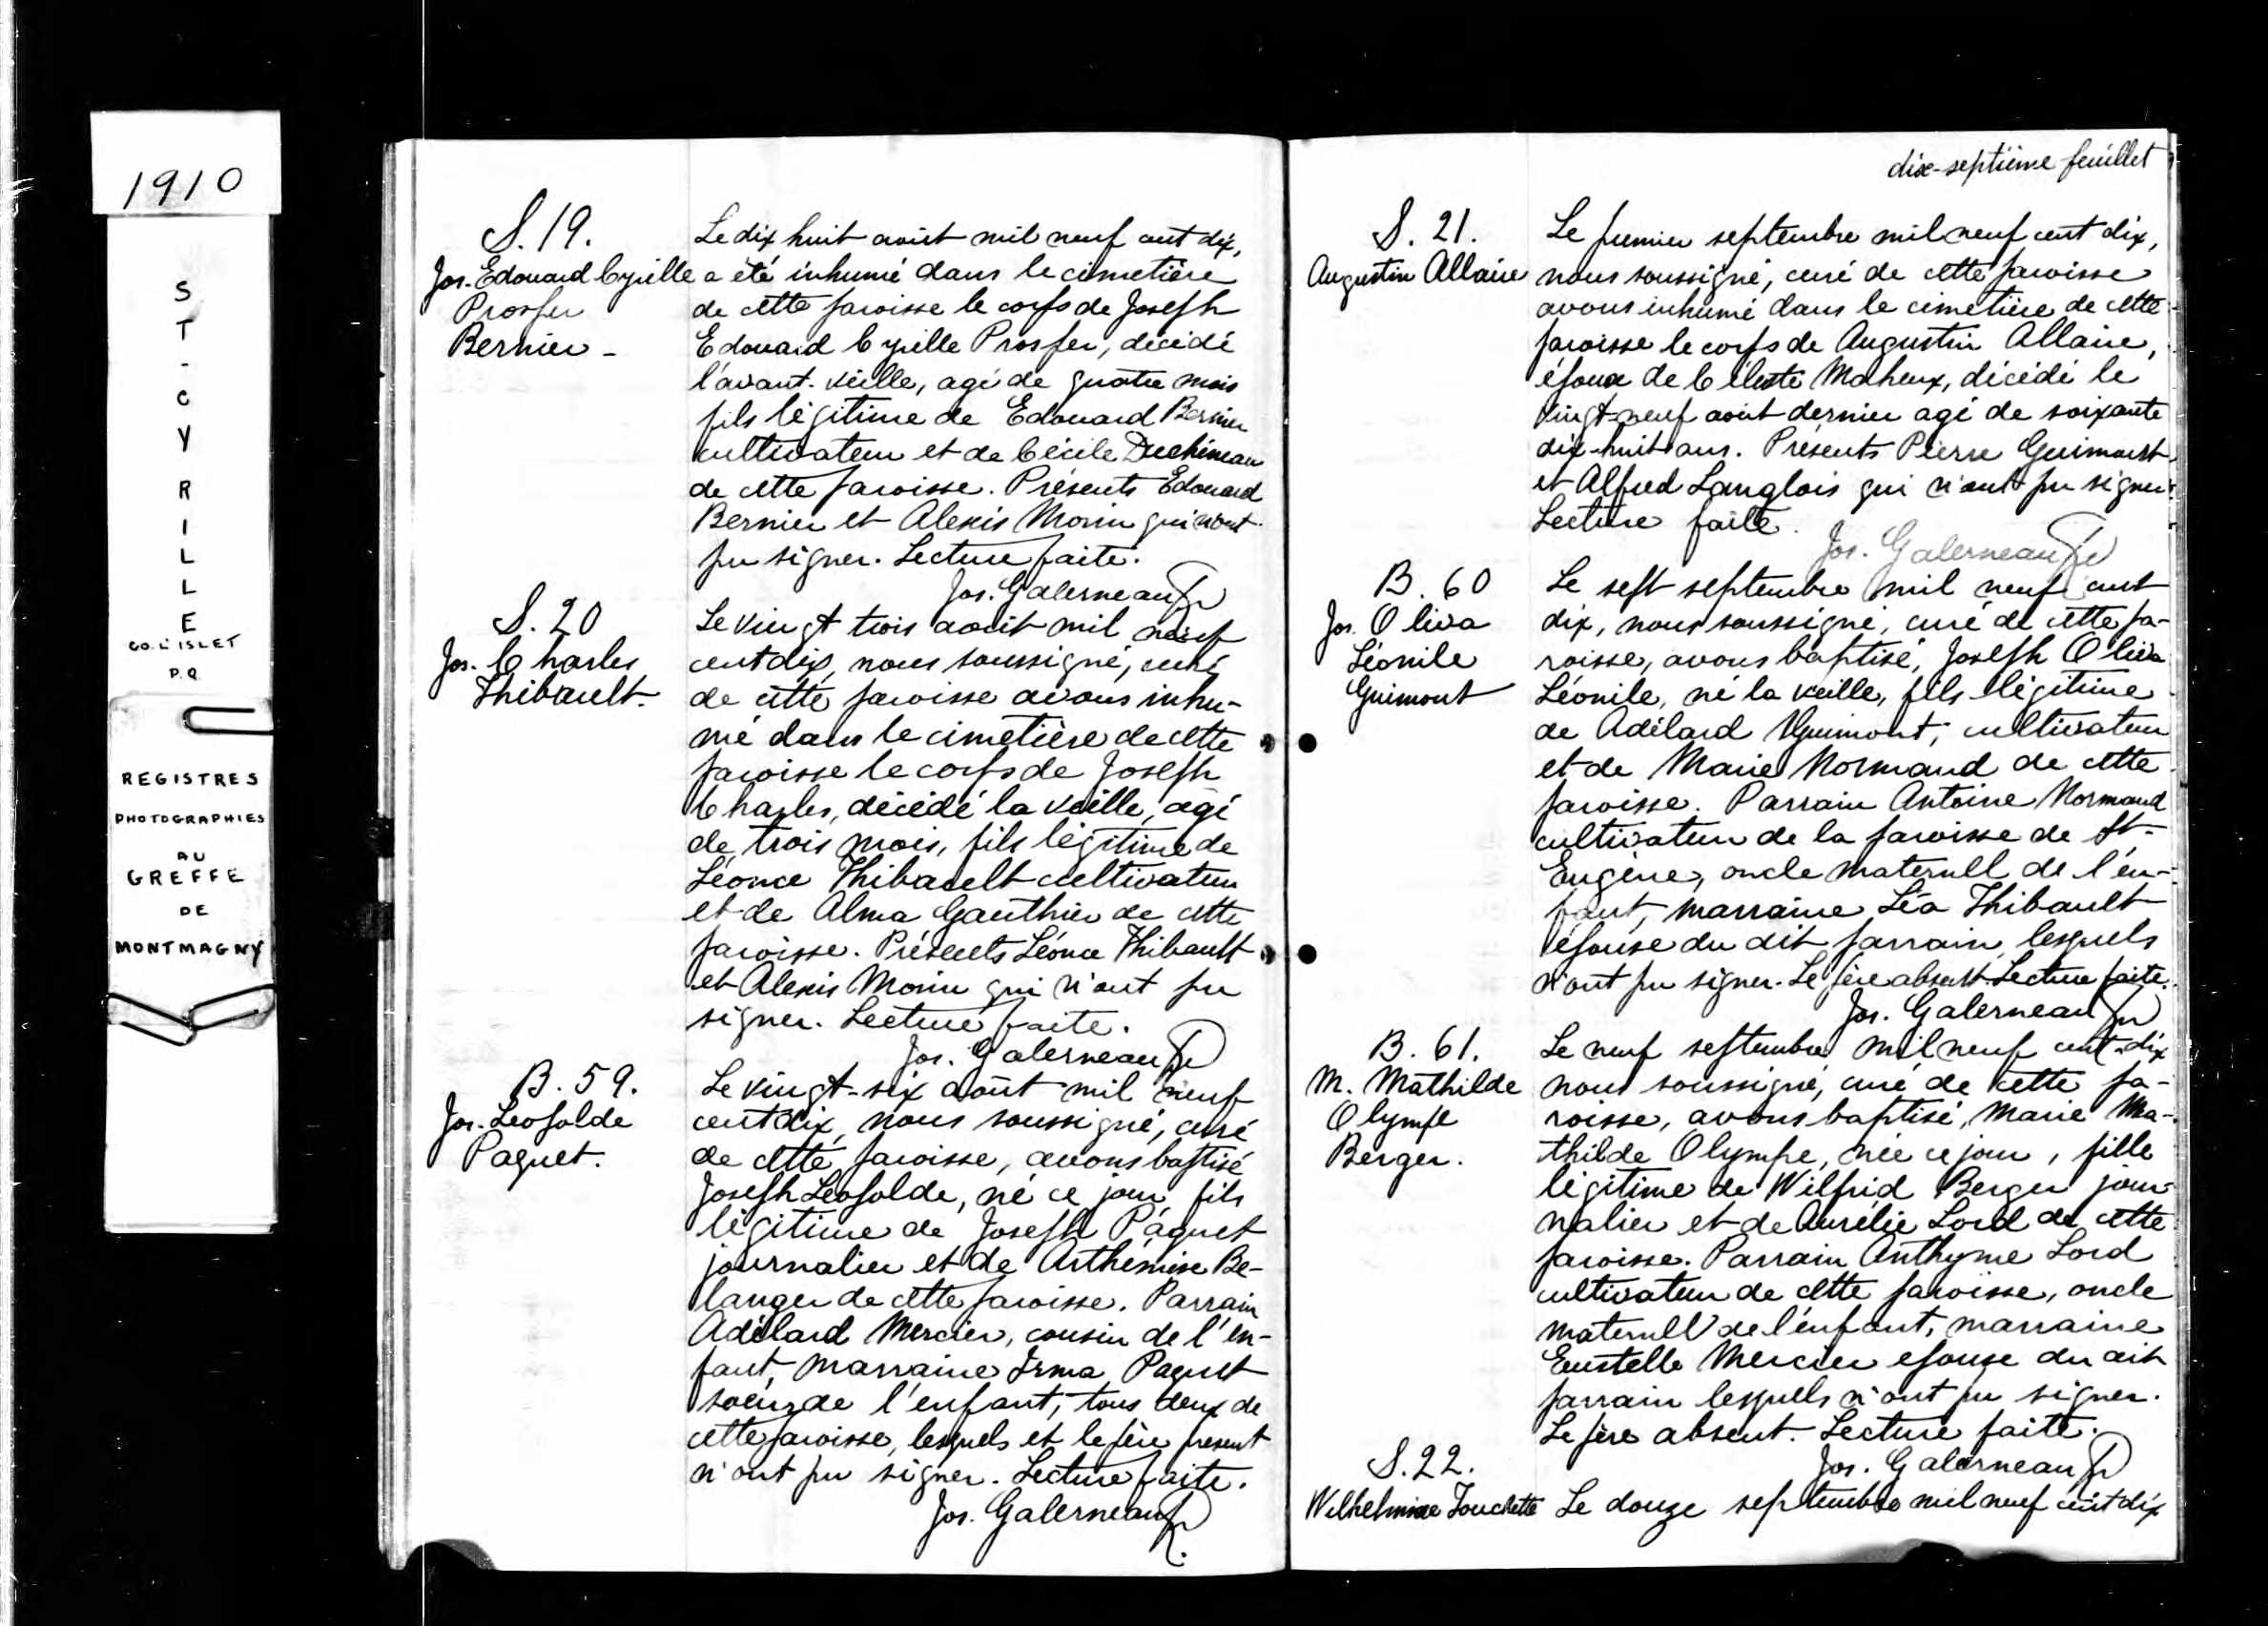 1910
ST-CYRILLE
CO. L'ISLET
P.Q.
REGISTRES
PHOTOGRAPHIES
AU
GREFFE
DE
MONTMAGNY
S. 19.
Jos. Edouard Cyrille
Prosper
Bernier -
Le dix huit août mil neuf cent dix,
a été inhumé dans le cimetière
de cette paroisse le corps de Joseph
Edouard Cyrille Prosper, décédé
l'avant-veille, agé de quatre mois
fils légitime de Edouard Bernier
cultivateur et de Cécile Duchéneau
de cette paroisse. Présents Edouard
Bernier et Alexis Morin qui n'ont
pu signer. Lecture faite.
Jos. Galerneau Ptr
S. 20
Jos. Charles
Thibault.
Le vingt trois août mil neuf
cent dix, nous soussigné, curé
de cette paroisse avons inhu-
mé dans le cimetière de cette
paroisse le corps de Joseph
Charles, décédé la veille, agé
de trois mois, fils légitime de
Léonce Thibault cultivateur
et de Alma Gauthier de cette
paroisse. Présents Léonce Thibault
et Alexis Morin qui n'ont pu
signer. Lecture faite.
Jos. Galerneau Ptr
B. 59.
Jos. Leopolde
Paquet.
Le vingt-six août mil neuf
cent dix, nous soussigné, curé
de cette paroisse, avons baptisé
Joseph Leopolde, né ce jour fils
légitime de Joseph Paquet
journalier et de Arthémise Be-
langer de cette paroisse. Parrain
Adélard Mercier, cousin de l'en-
fant, marraine Irma Paquet
soeur de l'enfant, tous deux de
cette paroisse, lesquels et le père present
n'ont pu signer. Lecture faite.
Jos. Galerneau Ptr.
dix-septième feuillet
S. 21.
Augustin Allaire
Le premier septembre mil neuf cent dix,
nous soussigné, curé de cette paroisse
avons inhumé dans le cimetière de cette
paroisse le corps de Augustin Allaire,
époux de Céleste Maheux, décédé le
vingt-neuf août dernier agé de soixante
dix-huit ans. Présents Pierre Guimont
et Alfred Langlois qui n'ont pu signer.
Lecture faite.
Jos. Galerneau Ptr
B. 60
Jos. Oliva
Léonile
Guimont
Le sept septembre mil neuf cent
dix, nous soussigné, curé de cette pa-
roisse, avons baptisé, Joseph Oliva
Léonile, né la veille, fils légitime
de Adélard Guimont, cultivateur
et de Marie Normand de cette
paroisse. Parrain Antoine Normand
cultivateur de la paroisse de St-
Eugène, oncle maternell de l'en-
fant, marraine Léa Thibault
épouse du dit parrain, lesquels
n'ont pu signer. Le père absent. Lecture faite.
Jos. Galerneau Ptr
B. 61.
M. Mathilde
Olympe
Berger.
Le neuf septembre mil neuf cent-dix
nous soussigné, curé de cette pa-
roisse, avons baptisé, Marie Ma-
thilde Olympe, née ce jour, fille
légitime de Wilfrid Berger jour-
nalier et de Aurélie Lord de cette
paroisse. Parrain Anthyme Lord
cultivateur de cette paroisse, oncle
maternell de l'enfant, marraine
Eustelle Mercier epouse du dit
parrain lesquels n'ont pu signer.
Le père absent. Lecture faite.
Jos. Galerneau Ptr
S. 22.
Wilhelmine Touchette
Le douze septembre mil neuf cent dix